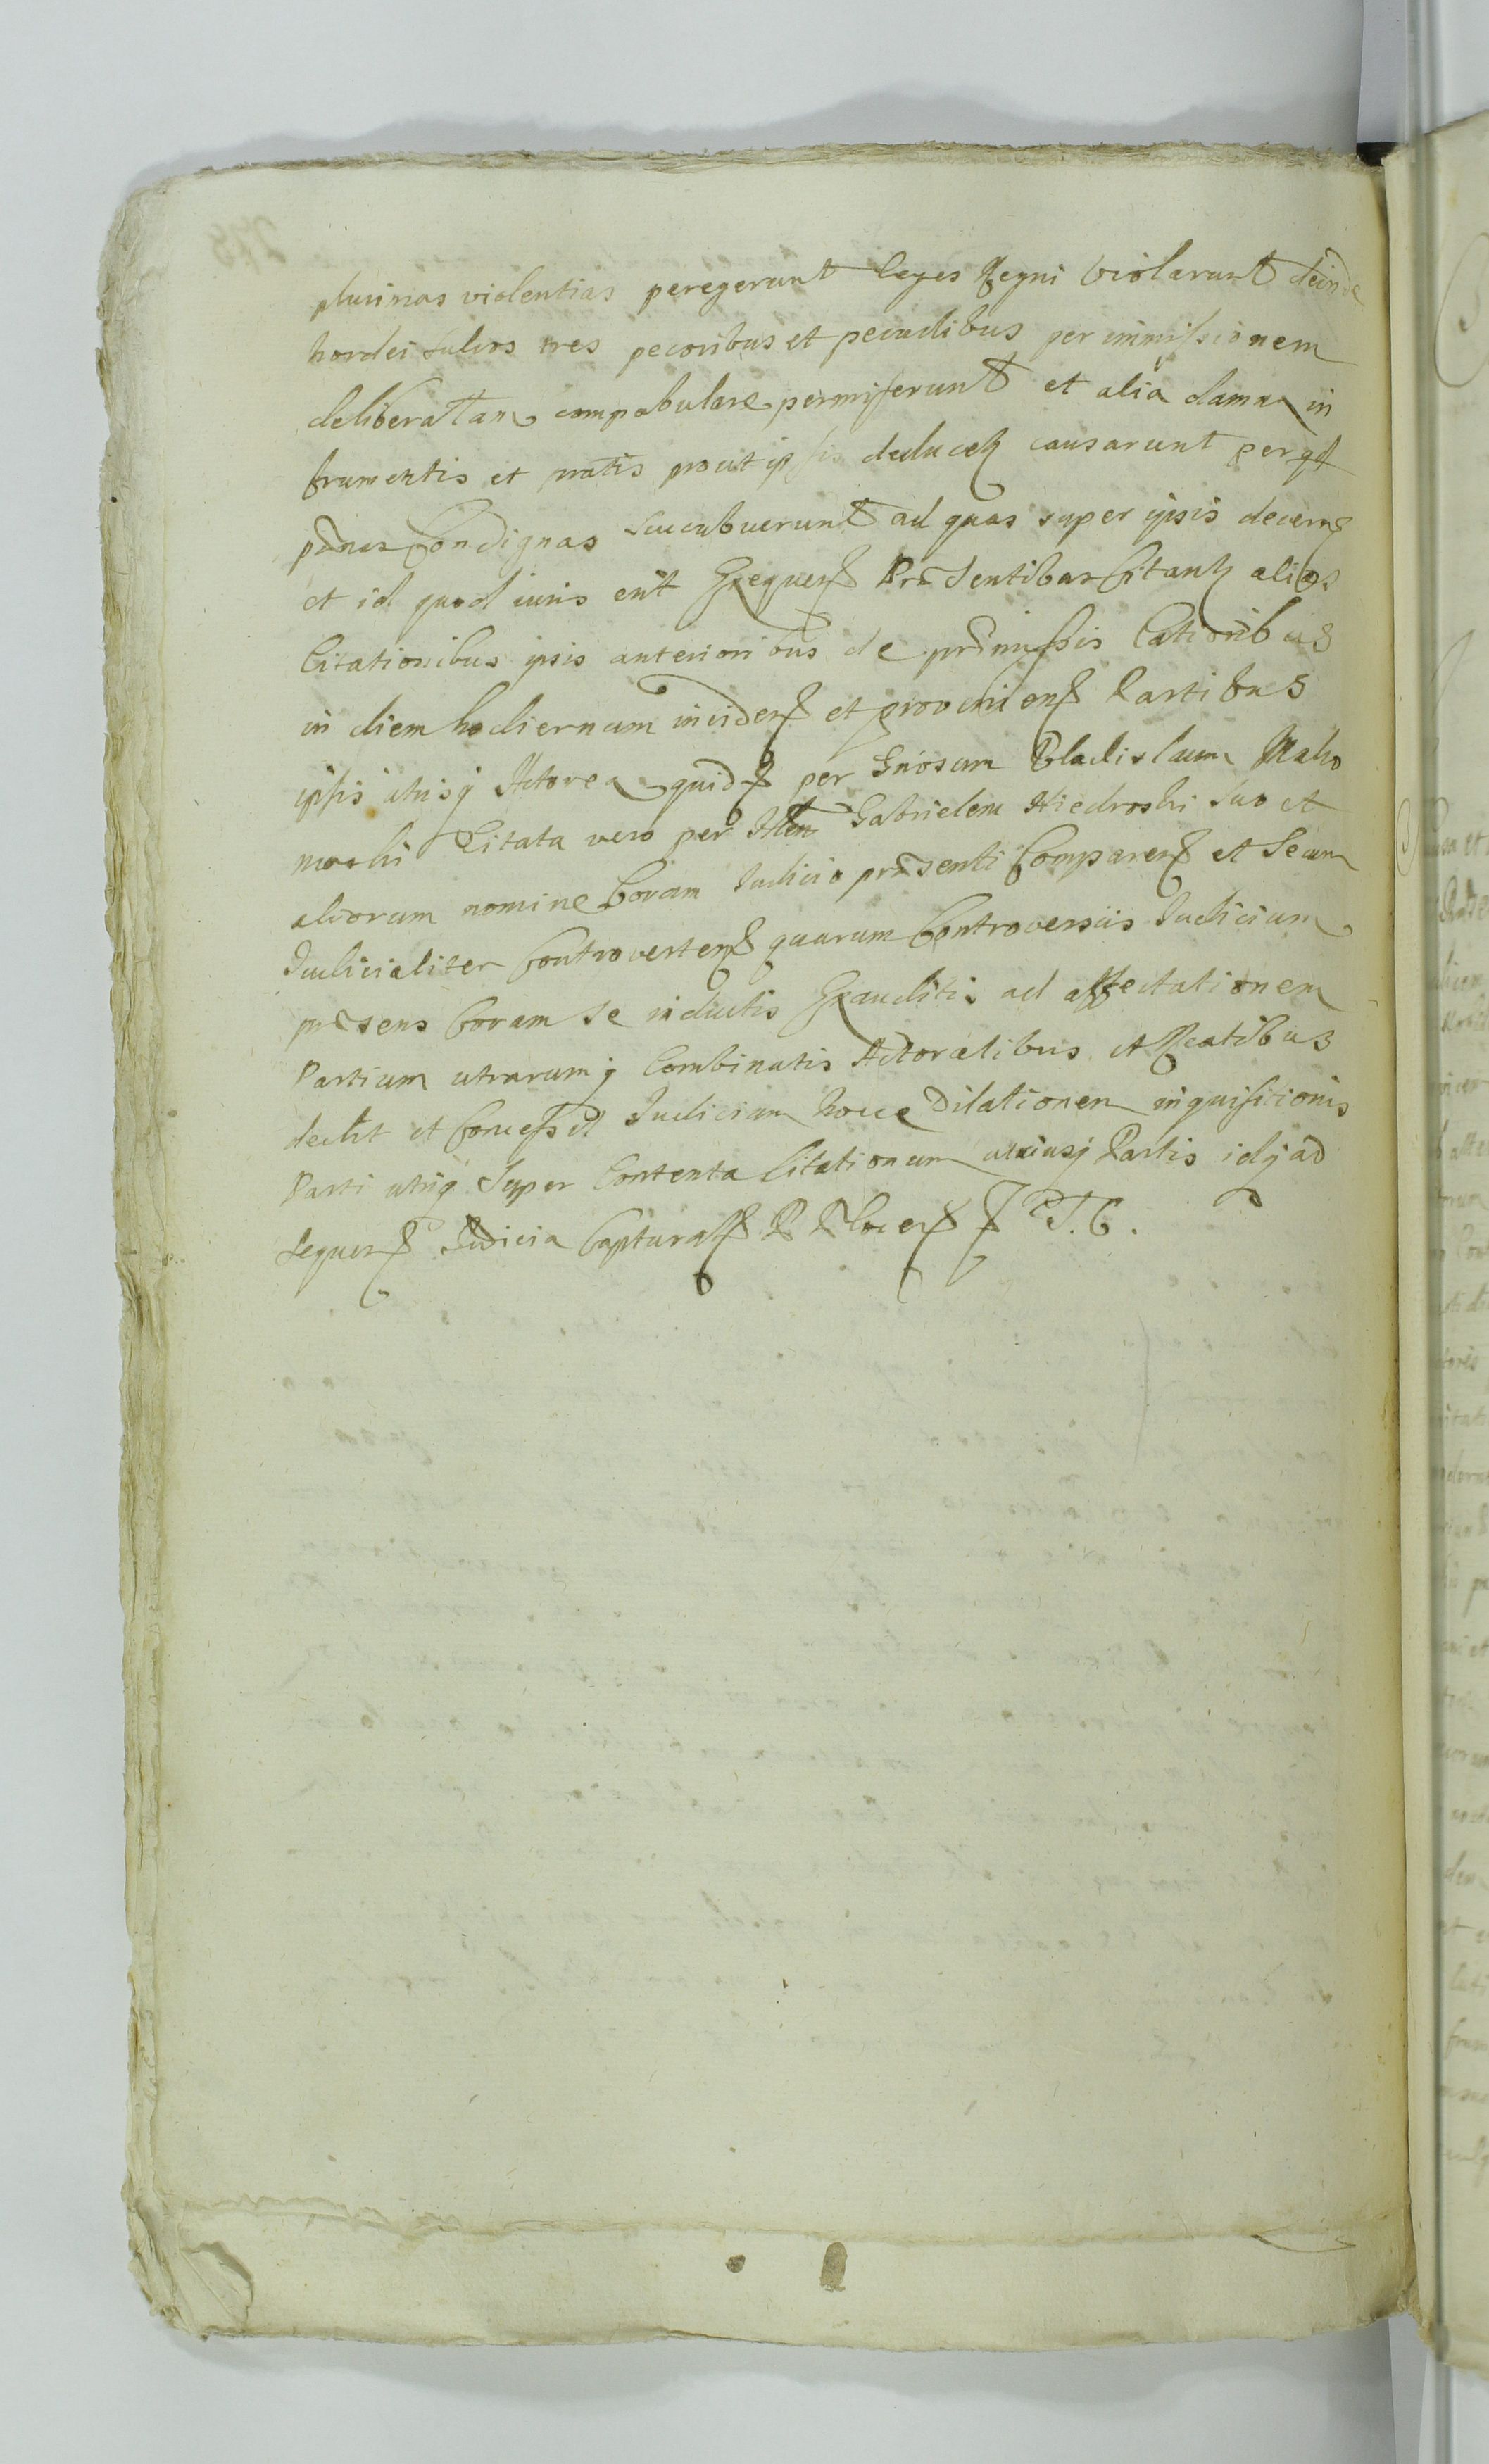 plurimas violentias peregerunt leges Regni violarunt deinde
hordei sulcos tres pecoribus et pecudibus per immissionem
deliberatam compabulare permiserunt et alia damna in
frumentis et pratis prout ipsis deducet causarunt per qd
paenas condignas succubuerunt ad quas super ipsis decern
et id quod iuris erit Exequen Praesentibus citant alias
Citationibus ipsis anterioribus de praemissis lationibus
in diem hodiernam inciden et provenien Partibus
ipsis utrisq Actorea quid per Gnosum Vladislaum Mako
moski Citata vero per Gabrielem Niedroski suo et
aliorum nomine Coram Iudicio praesenti Comparen et secum
Iudicialiter Controverten quarum Controversiis Iudicium
praesens Coram se inductis Exauditis ad affectationem
Partium utrarumq Combinatis Actoratibus et Reatibus
dedit et Concessit Iudicium hocce Dilationem inquisitionis
Parti utriq Super Contenta Citationum utriusq Partis idq ad
sequen Iudicia Captural P T. C.